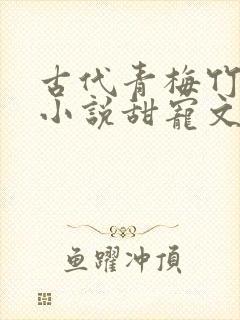 古代青梅竹
小说甜宠文
鱼躍冲頂